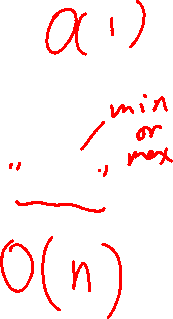 O(1)
min
or
max
" "
O(n)